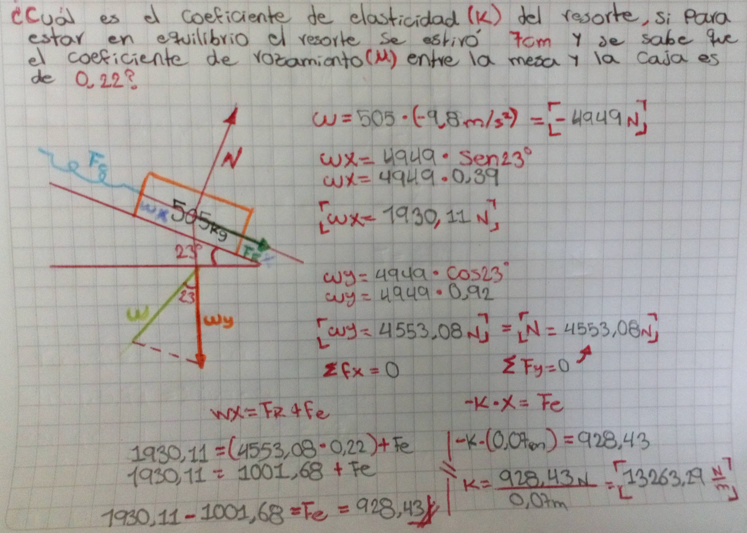 ¿Cuál es el coeficiente de elasticidad (K) del resorte, si para
estar en equilibrio el resorte se estiró 7cm y se sabe que
el coeficiente de rozamiento (M) entre la mesa y la caja es
de 0,22?
ω = 505 · (-9,8 m/s²) = [-4949 N]
N
Fe
ωx
505kg
Fr
23°
ωx = 4949 · Sen23°
ωx = 4949 · 0,39
[ωx = 1930,11 N]
ω
23
ωy
ωy = 4949 · Cos23°
ωy = 4949 · 0,92
[ωy = 4553,08 N] = [N = 4553,08N]
Σfx = 0
ΣFy=0
ωx = FR + Fe
-K·X = Fe
1930,11 = (4553,08 · 0,22) + Fe
1930,11 = 1001,68 + Fe
1930,11 - 1001,68 = Fe = 928,43
-K·(0,07m) = 928,43
K = 928,43 N / 0,07m = [13263,29 N/m]